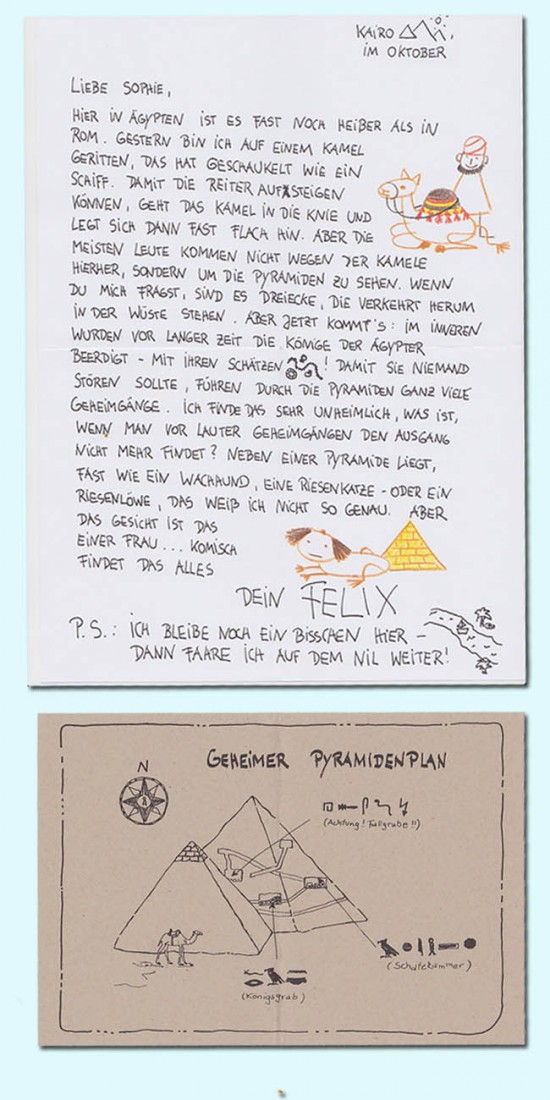 KAIRO
IM OKTOBER
LIEBE SOPHIE,
HIER IN ÄGYPTEN IST ES FAST NOCH HEIßER ALS IN
ROM. GESTERN BIN ICH AUF EINEM KAMEL
GERITTEN, DAS HAT GESCHAUKELT WIE EIN
SCHIFF. DAMIT DIE REITER AUFSTEIGEN
KÖNNEN, GEHT DAS KAMEL IN DIE KNIE UND
LEGT SICH DANN FAST FLACH HIN. ABER DIE
MEISTEN LEUTE KOMMEN NICHT WEGEN DER KAMELE
HIERHER, SONDERN UM DIE PYRAMIDEN ZU SEHEN. WENN
DU MICH FRAGST, SIND ES DREIECKE, DIE VERKEHRT HERUM
IN DER WÜSTE STEHEN. ABER JETZT KOMMT'S: IM INNEREN
WURDEN VOR LANGER ZEIT DIE KÖNIGE DER ÄGYPTER
BEERDIGT - MIT IHREN SCHÄTZEN! DAMIT SIE NIEMAND
STÖREN SOLLTE, FÜHREN DURCH DIE PYRAMIDEN GANZ VIELE
GEHEIMGÄNGE. ICH FINDE DAS SEHR UNHEIMLICH, WAS IST,
WENN MAN VOR LAUTER GEHEIMGÄNGEN DEN AUSGANG
NICHT MEHR FINDET? NEBEN EINER PYRAMIDE LIEGT,
FAST WIE EIN WACHHUND, EINE RIESENKATZE - ODER EIN
RIESENLÖWE, DAS WEIß ICH NICHT SO GENAU. ABER
DAS GESICHT IST DAS
EINER FRAU... KOMISCH
FINDET DAS ALLES
DEIN FELIX
P.S.: ICH BLEIBE NOCH EIN BISSCHEN HIER -
DANN FAHRE ICH AUF DEM NIL WEITER!
GEHEIMER PYRAMIDENPLAN
N
(Achtung! Fallgrube!!)
(Schatzkammer)
(Königsgrab)